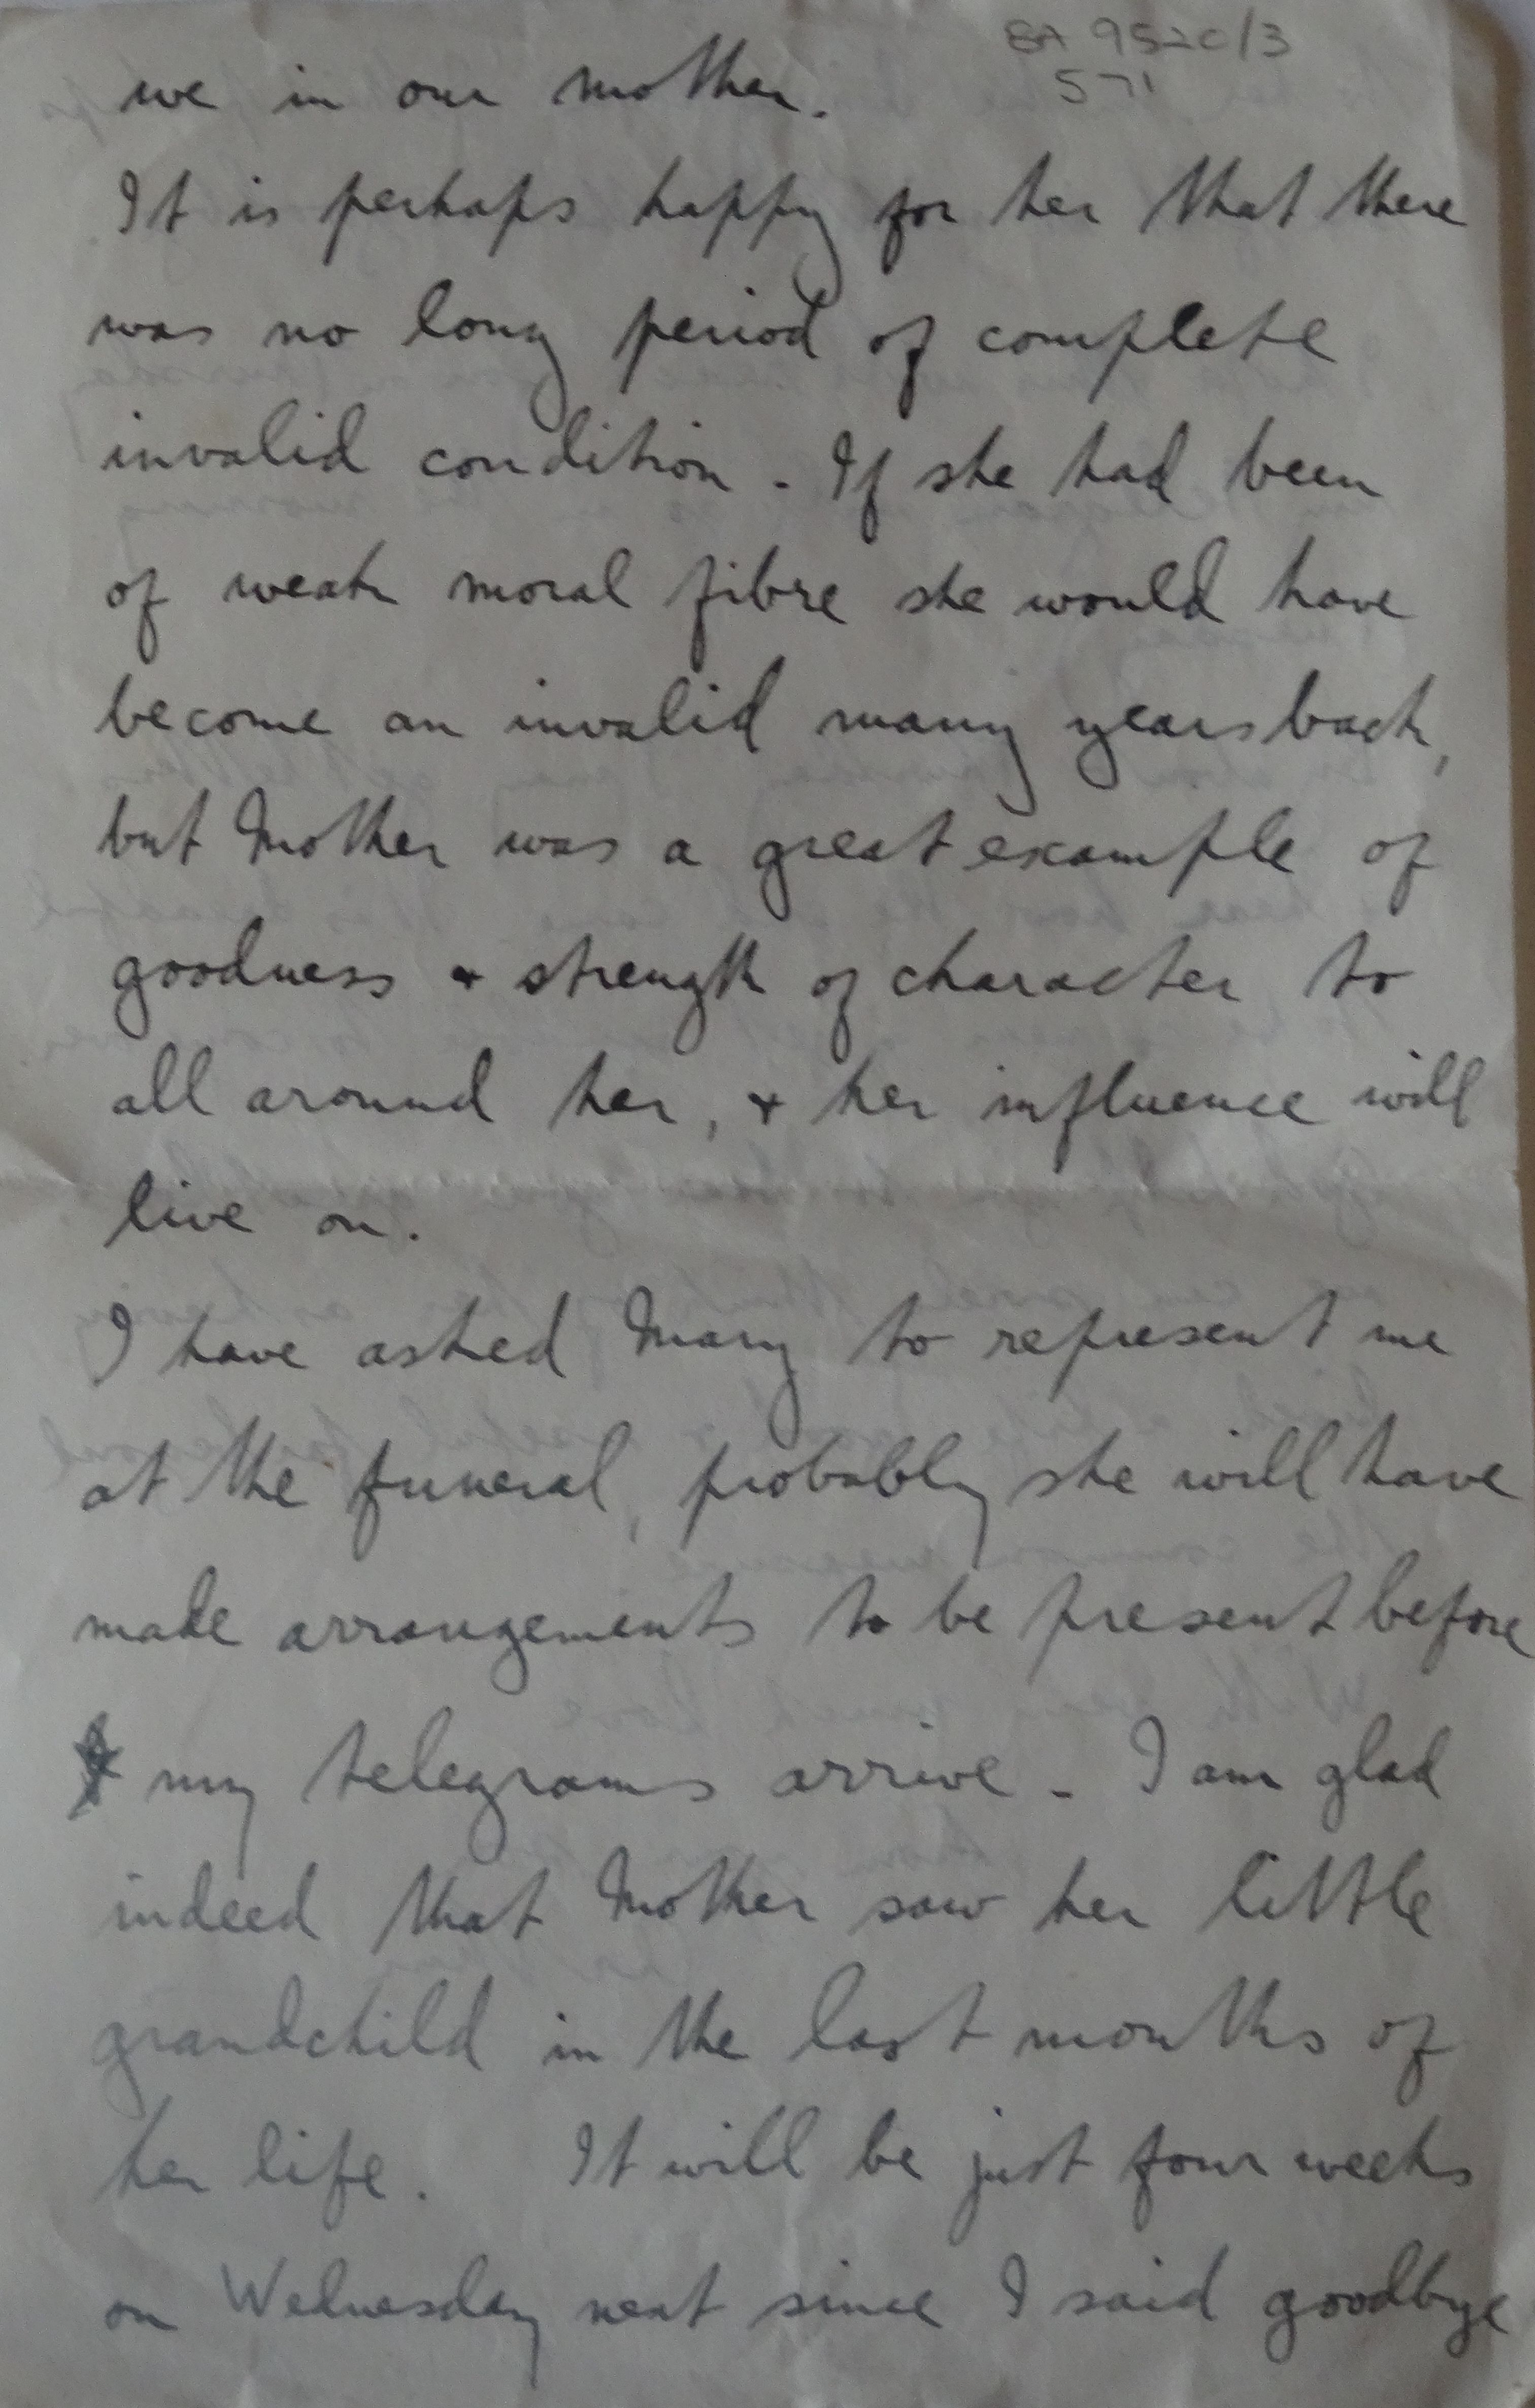 8A 9520/3
571
we in our mother.
It is perhaps happy for her that there
was no long period of complete
invalid condition. If she had been
of weak moral fibre she would have
become an invalid many years back,
but Mother was a great example of
goodness & strength of character to
all around her, & her influence will
live on.
I have asked Mary to represent me
at the funeral, probably she will have
made arrangements to be present before
my telegrams arrive. I am glad
indeed that Mother saw her little
grandchild in the last months of
her life. It will be just four weeks
on Wednesday next since I said goodbye